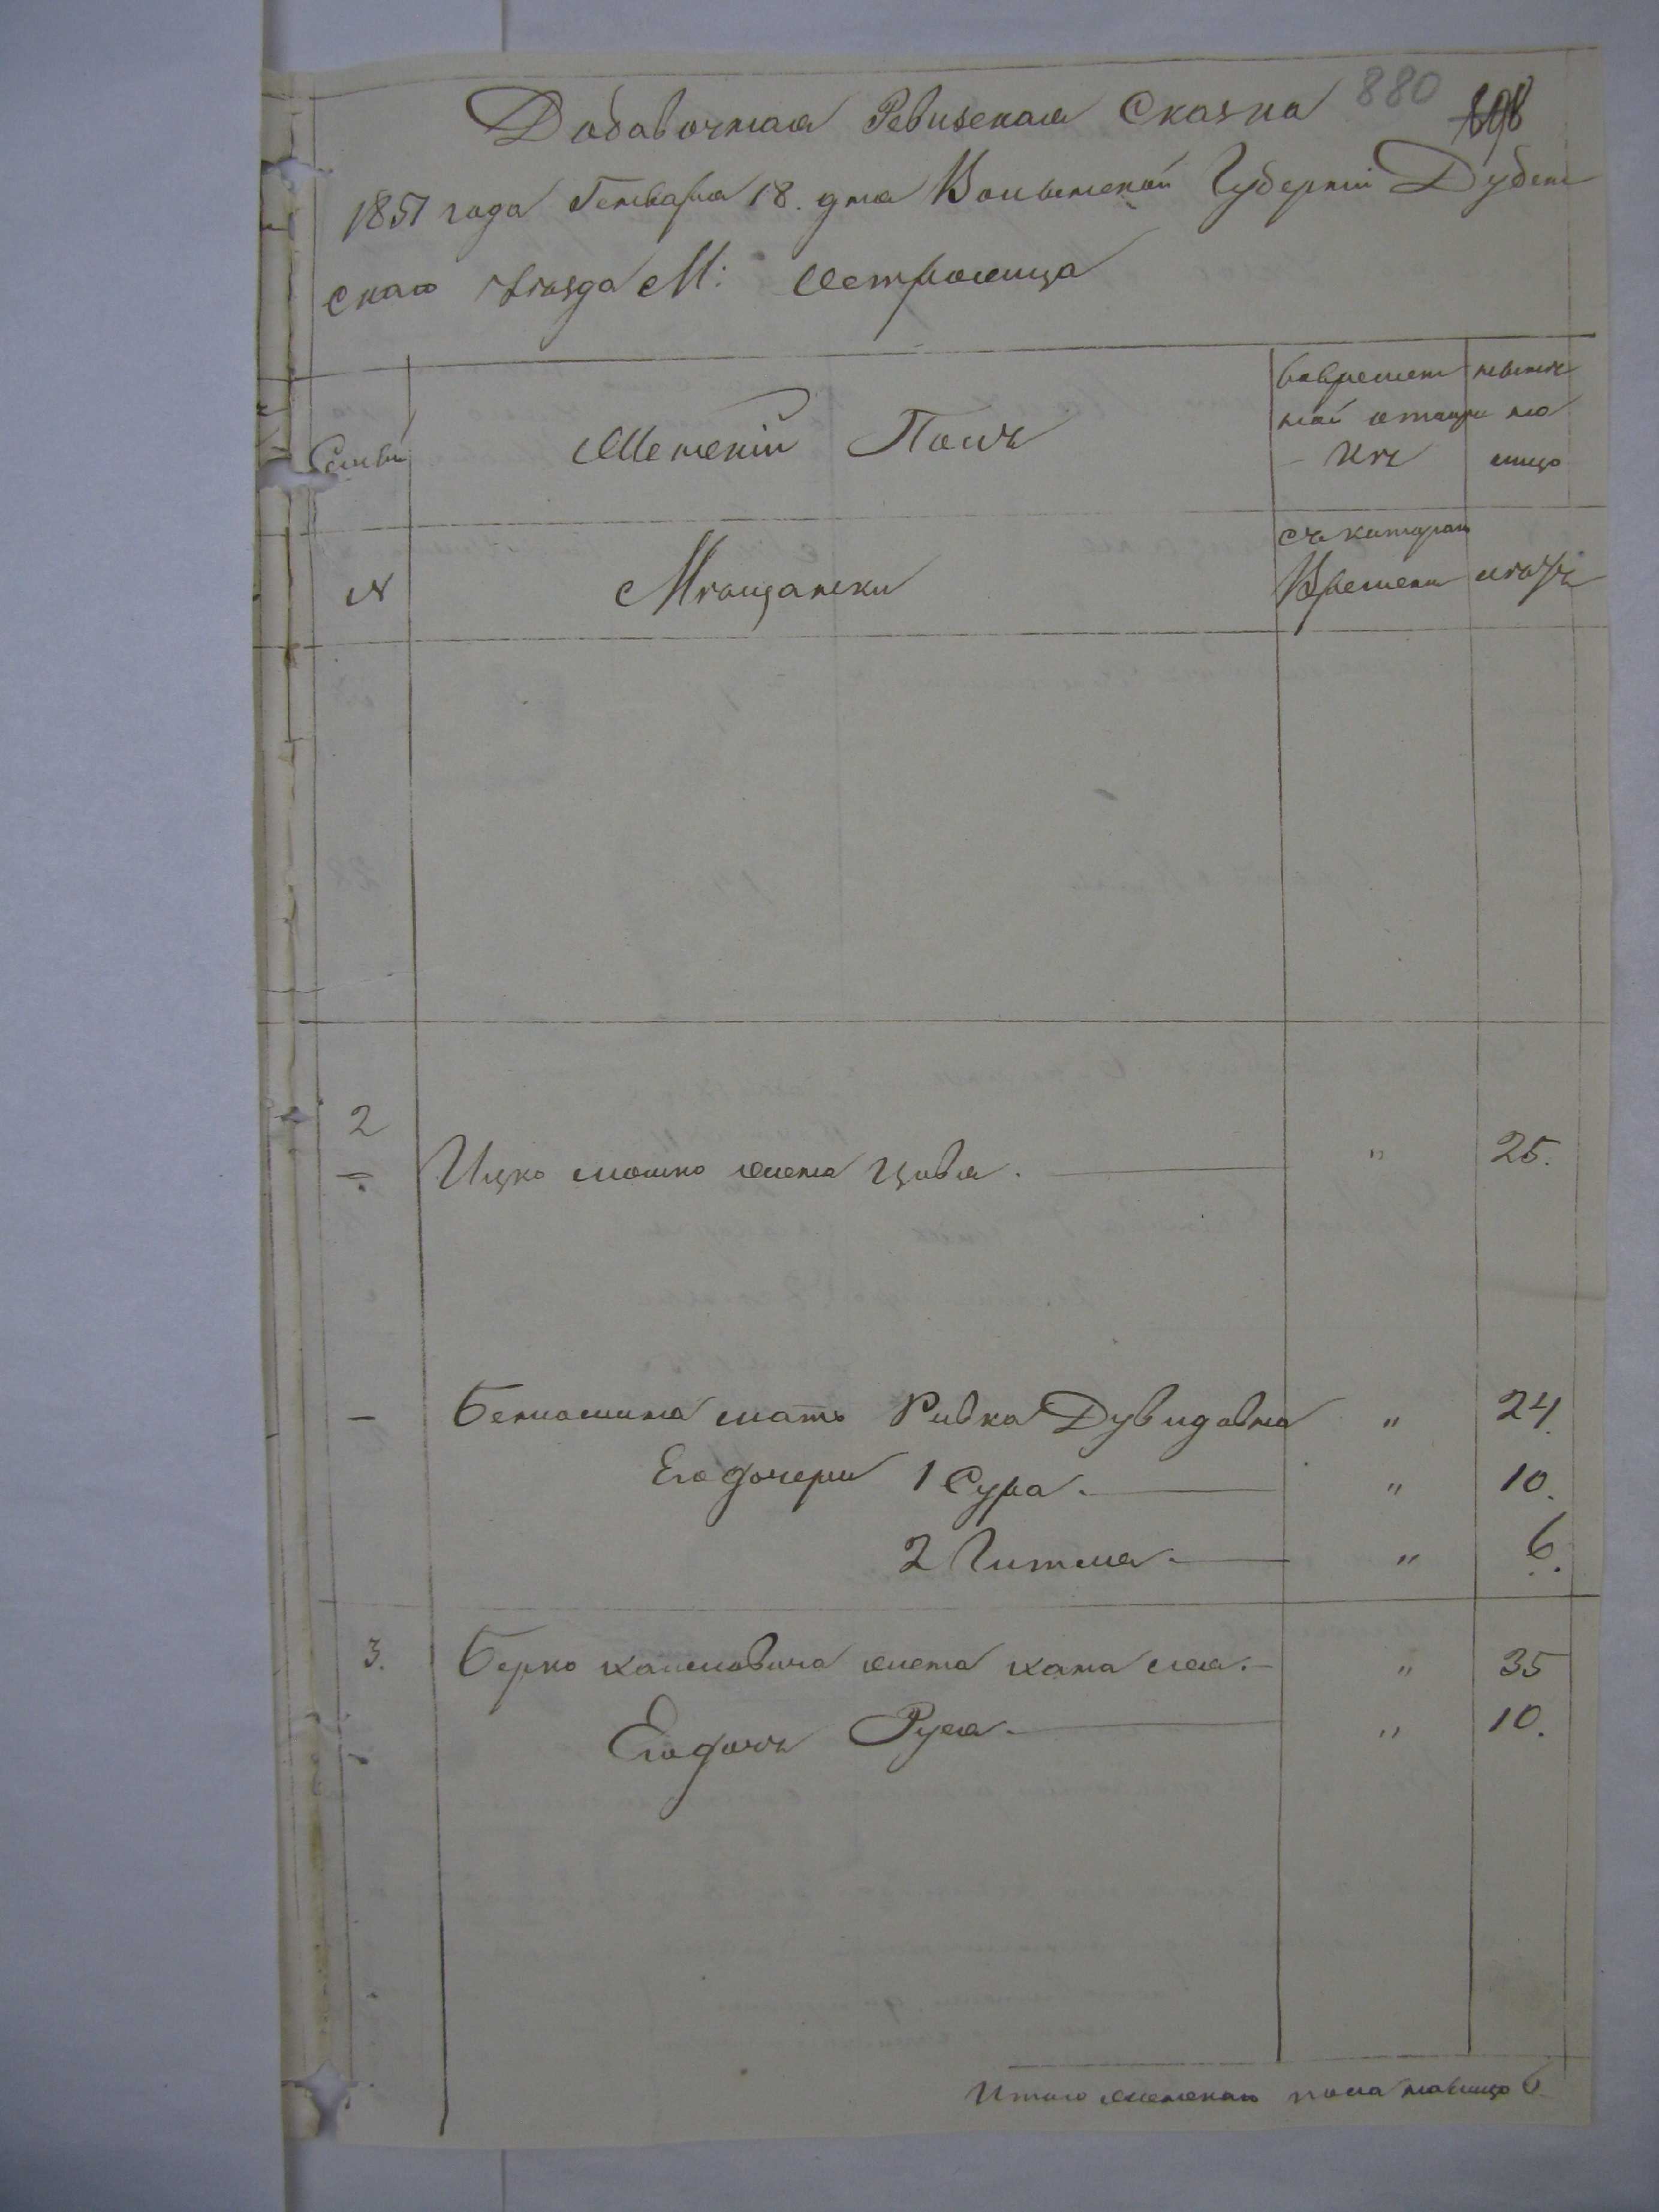 Добавочная Ревизская Сказка 880
1851 года Генваря 18. дня Волынской Губернiи Дубен
скаго Уезда М: Острожца
Семьи
Женскiй Полъ
вовремен
ной отлуч
ке
ныне
на
лицо
N
Мещански
съ котораго
Времени
летъ
2
Ицко мошко жена Цивя. " 25.
Бениомина мать Ривка Дувидовна " 24.
Его дочери 1 Сура. " 10.
2 Гитля. " 6.
3. Берко хаимовича жена хана лея. " 35
Его дочь Руся. " 10.
Итого женскаго пола налицо 6.